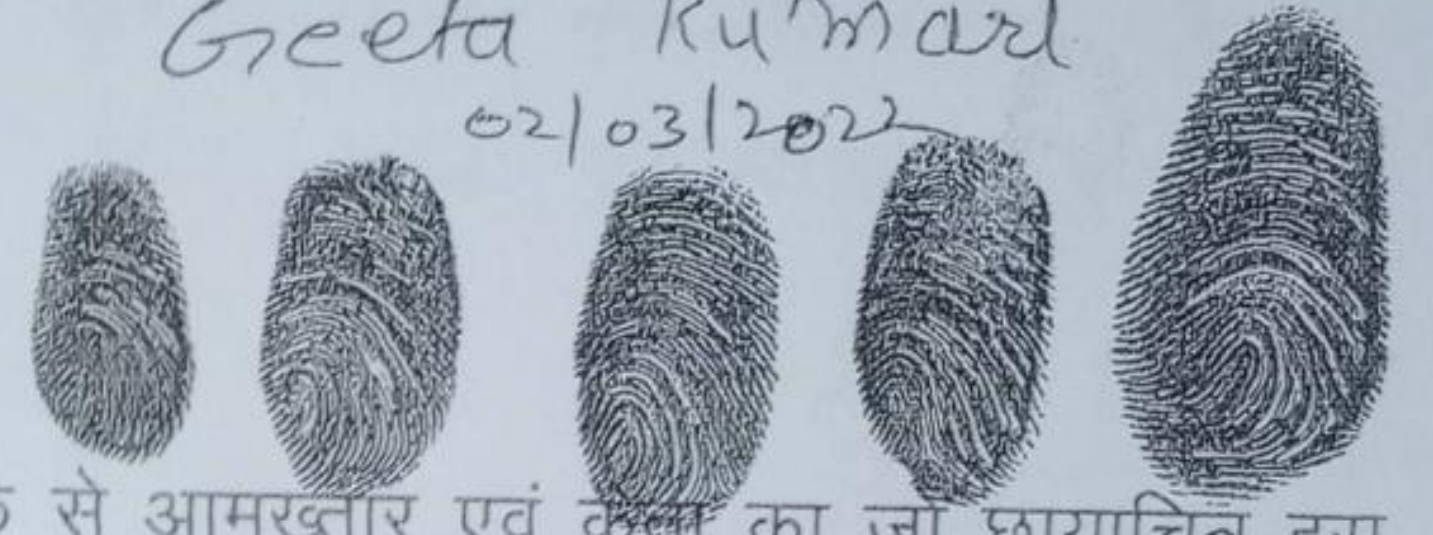 Geeta Kumari
02/03/2022
से आमख्तार एवं का जो छायाचित्र